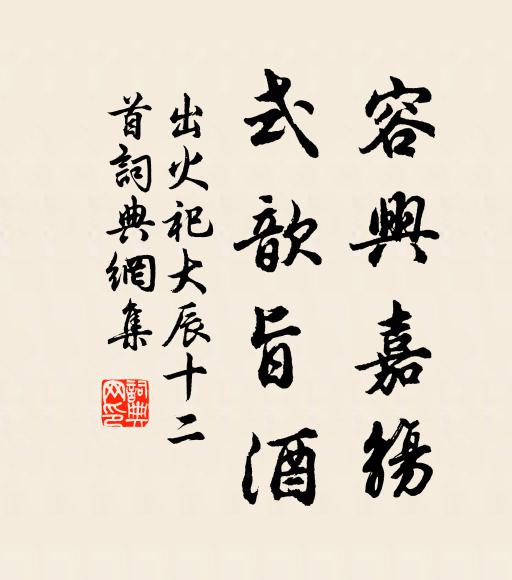 容興嘉觴
式歆旨酒
出火祀大辰十二
首詞典網集
詞典網印